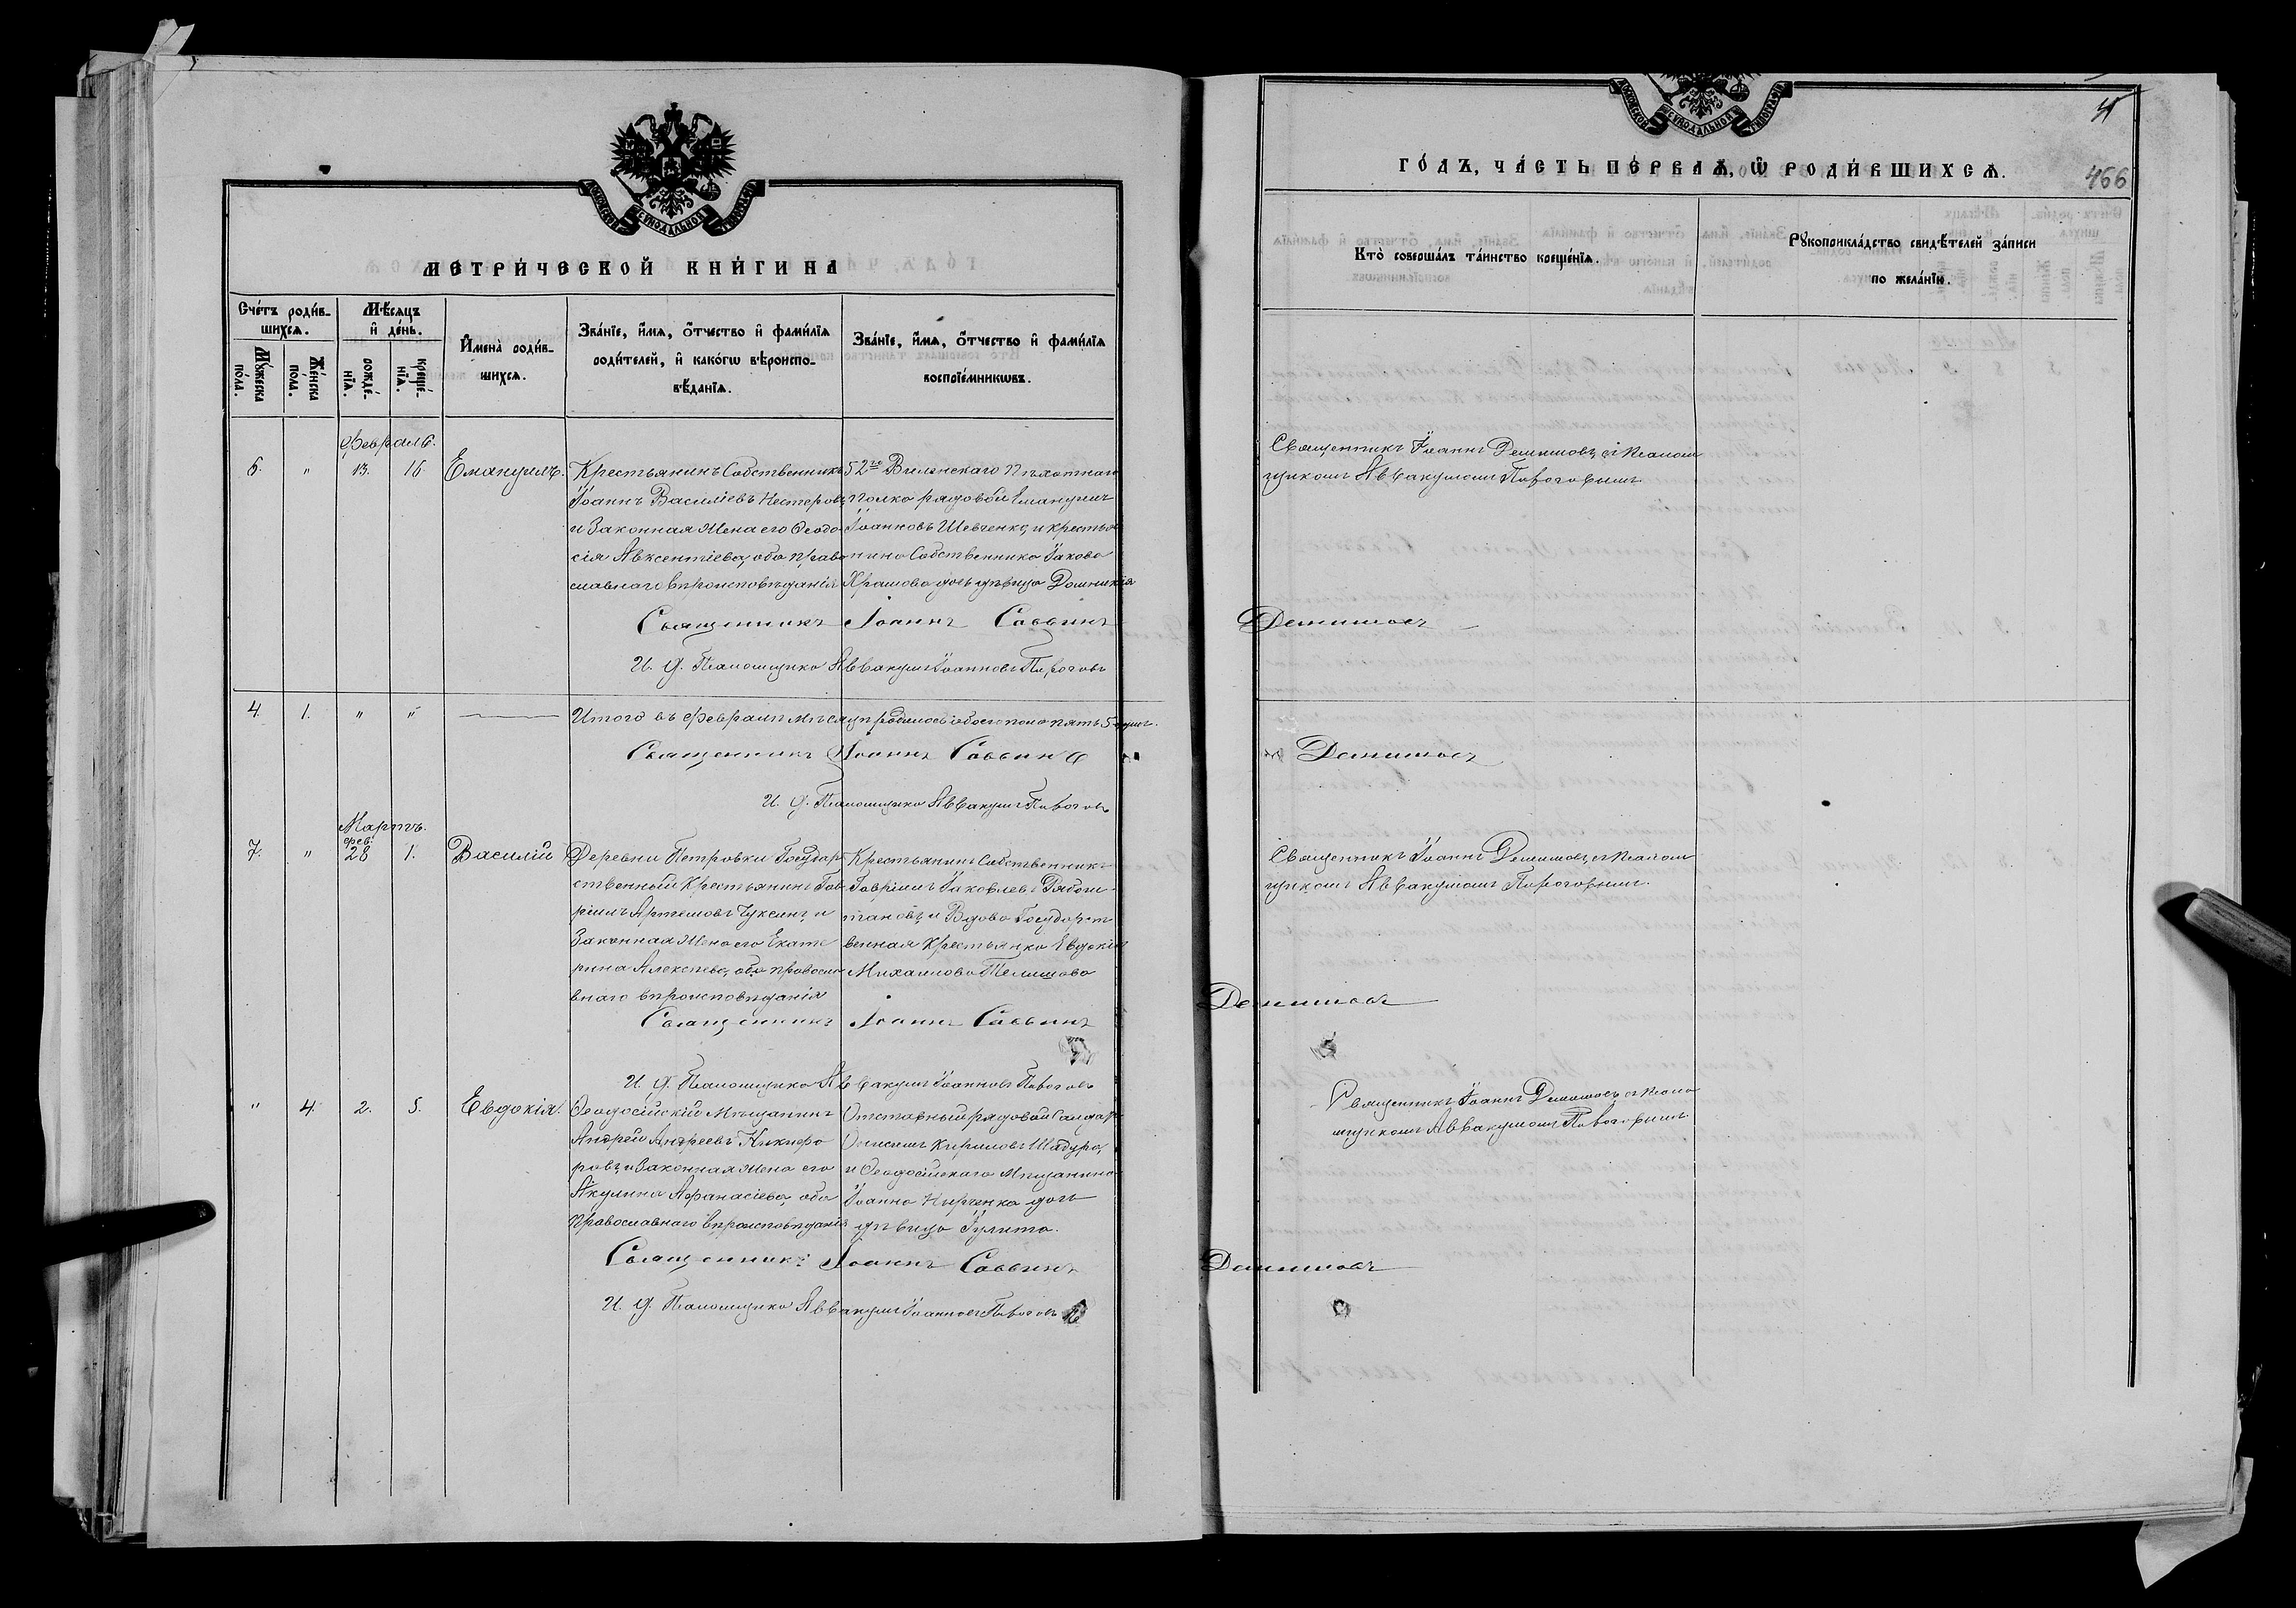 МОСКОВСКОЙ СѴНОДАЛЬНОЙ ТИПОГРАФІИ
МЕТРИ́ЧЕСКОЙ КНИ́ГИ НА
Сче́тъ роди́вшихсѧ.
Мꙋ́жеска по́ла.
Же́нска по́ла.
Мѣ́сѧцъ и҆ де́нь.
рожде́нїѧ.
креще́нїѧ.
И҆мена̀ роди́вшихсѧ.
Зва́нїе, и҆́мѧ, ѻ҆́тчество и҆ фами́лїѧ
роди́телей, и҆ како́гѡ вѣроиспо-
вѣ́данїѧ.
Зва́нїе, и҆́мѧ, ѻ҆́тчество и҆ фами́лїѧ
воспрїе́мникѡвъ.
Февраль.
6. " 13. 16. Емануилъ.
Крестьянинъ Собственникъ
Іоаннъ Василіевъ Нестеровъ,
и Законная Жена его Ѳеодо-
сія Авксентіева, оба право
славнаго вѣроисповѣданія
52го Виленскаго Пѣхотнаго
полка рядовой Емануилъ
Іоанновъ Шевченко, и крестья
нина Собственника Іакова
Храмова дочь дѣвица Домникія
Священникъ Іоаннъ Саввинъ
И. д. Псаломщика Аввакумъ Іоанновъ Пироговъ
4. 1. " "
Итого въ Февралѣ мѣсяцѣ родилось обоего пола пять 5 душъ.
Священникъ Іоаннъ Саввинъ
И. д. Псаломщика Аввакумъ Пироговъ
Мартъ.
7. " фев: 28 1. Василій
Деревни Петровки Государ-
ственный Крестьянинъ Гав-
ріилъ Артемовъ Чуксинъ, и
Законная Жена его Екате
рина Алексѣева, оба правосла
внаго вѣроисповѣданія
Крестьянинъ Собственникъ
Гавріилъ Іаковлевъ
и Вдова Государст
венная Крестьянка Евдокія
Михаилова Телишова
Священникъ Іоаннъ Саввинъ
И. д. Псаломщика Аввакумъ Іоанновъ Пироговъ
" 4. 2. 5. Евдокія.
Ѳеодосійскій Мѣщанинъ
Андрей Андреевъ Никифо
ровъ, и Законная Жена его
Акулина Афанасіева, оба
Православнаго вѣроисповѣданія
Отставный рядовой
Кириловъ Шадура,
и Ѳеодосійскаго Мѣщанина
Іоанна Кирченка дочь
дѣвица Іулита.
Священникъ Іоаннъ Саввинъ
И. д. Псаломщика Аввакумъ Іоанновъ Пироговъ
МОСКОВСКОЙ СѴНОДАЛЬНОЙ ТИПОГРАФІИ
ГО́ДЪ, ЧА́СТЬ ПЕ́РВАѦ, Ѡ҆ РОДИ́ВШИХСѦ.
466
Кто̀ соверша́лъ та́инство креще́нїѧ.
Рꙋкоприкла́дство свидѣ́телей за́писи
по жела́нїю.
Священникъ Іоаннъ Демишовъ, съ Псалом
щикомъ Аввакумомъ Пироговымъ
Демишовъ
Демишовъ
Священникъ Іоаннъ Демишовъ, съ Псалом
щикомъ Аввакумомъ Пироговымъ.
Демишовъ
Священникъ Іоаннъ Демишовъ съ Псало
мщикомъ Аввакумомъ Пироговымъ
Демишовъ